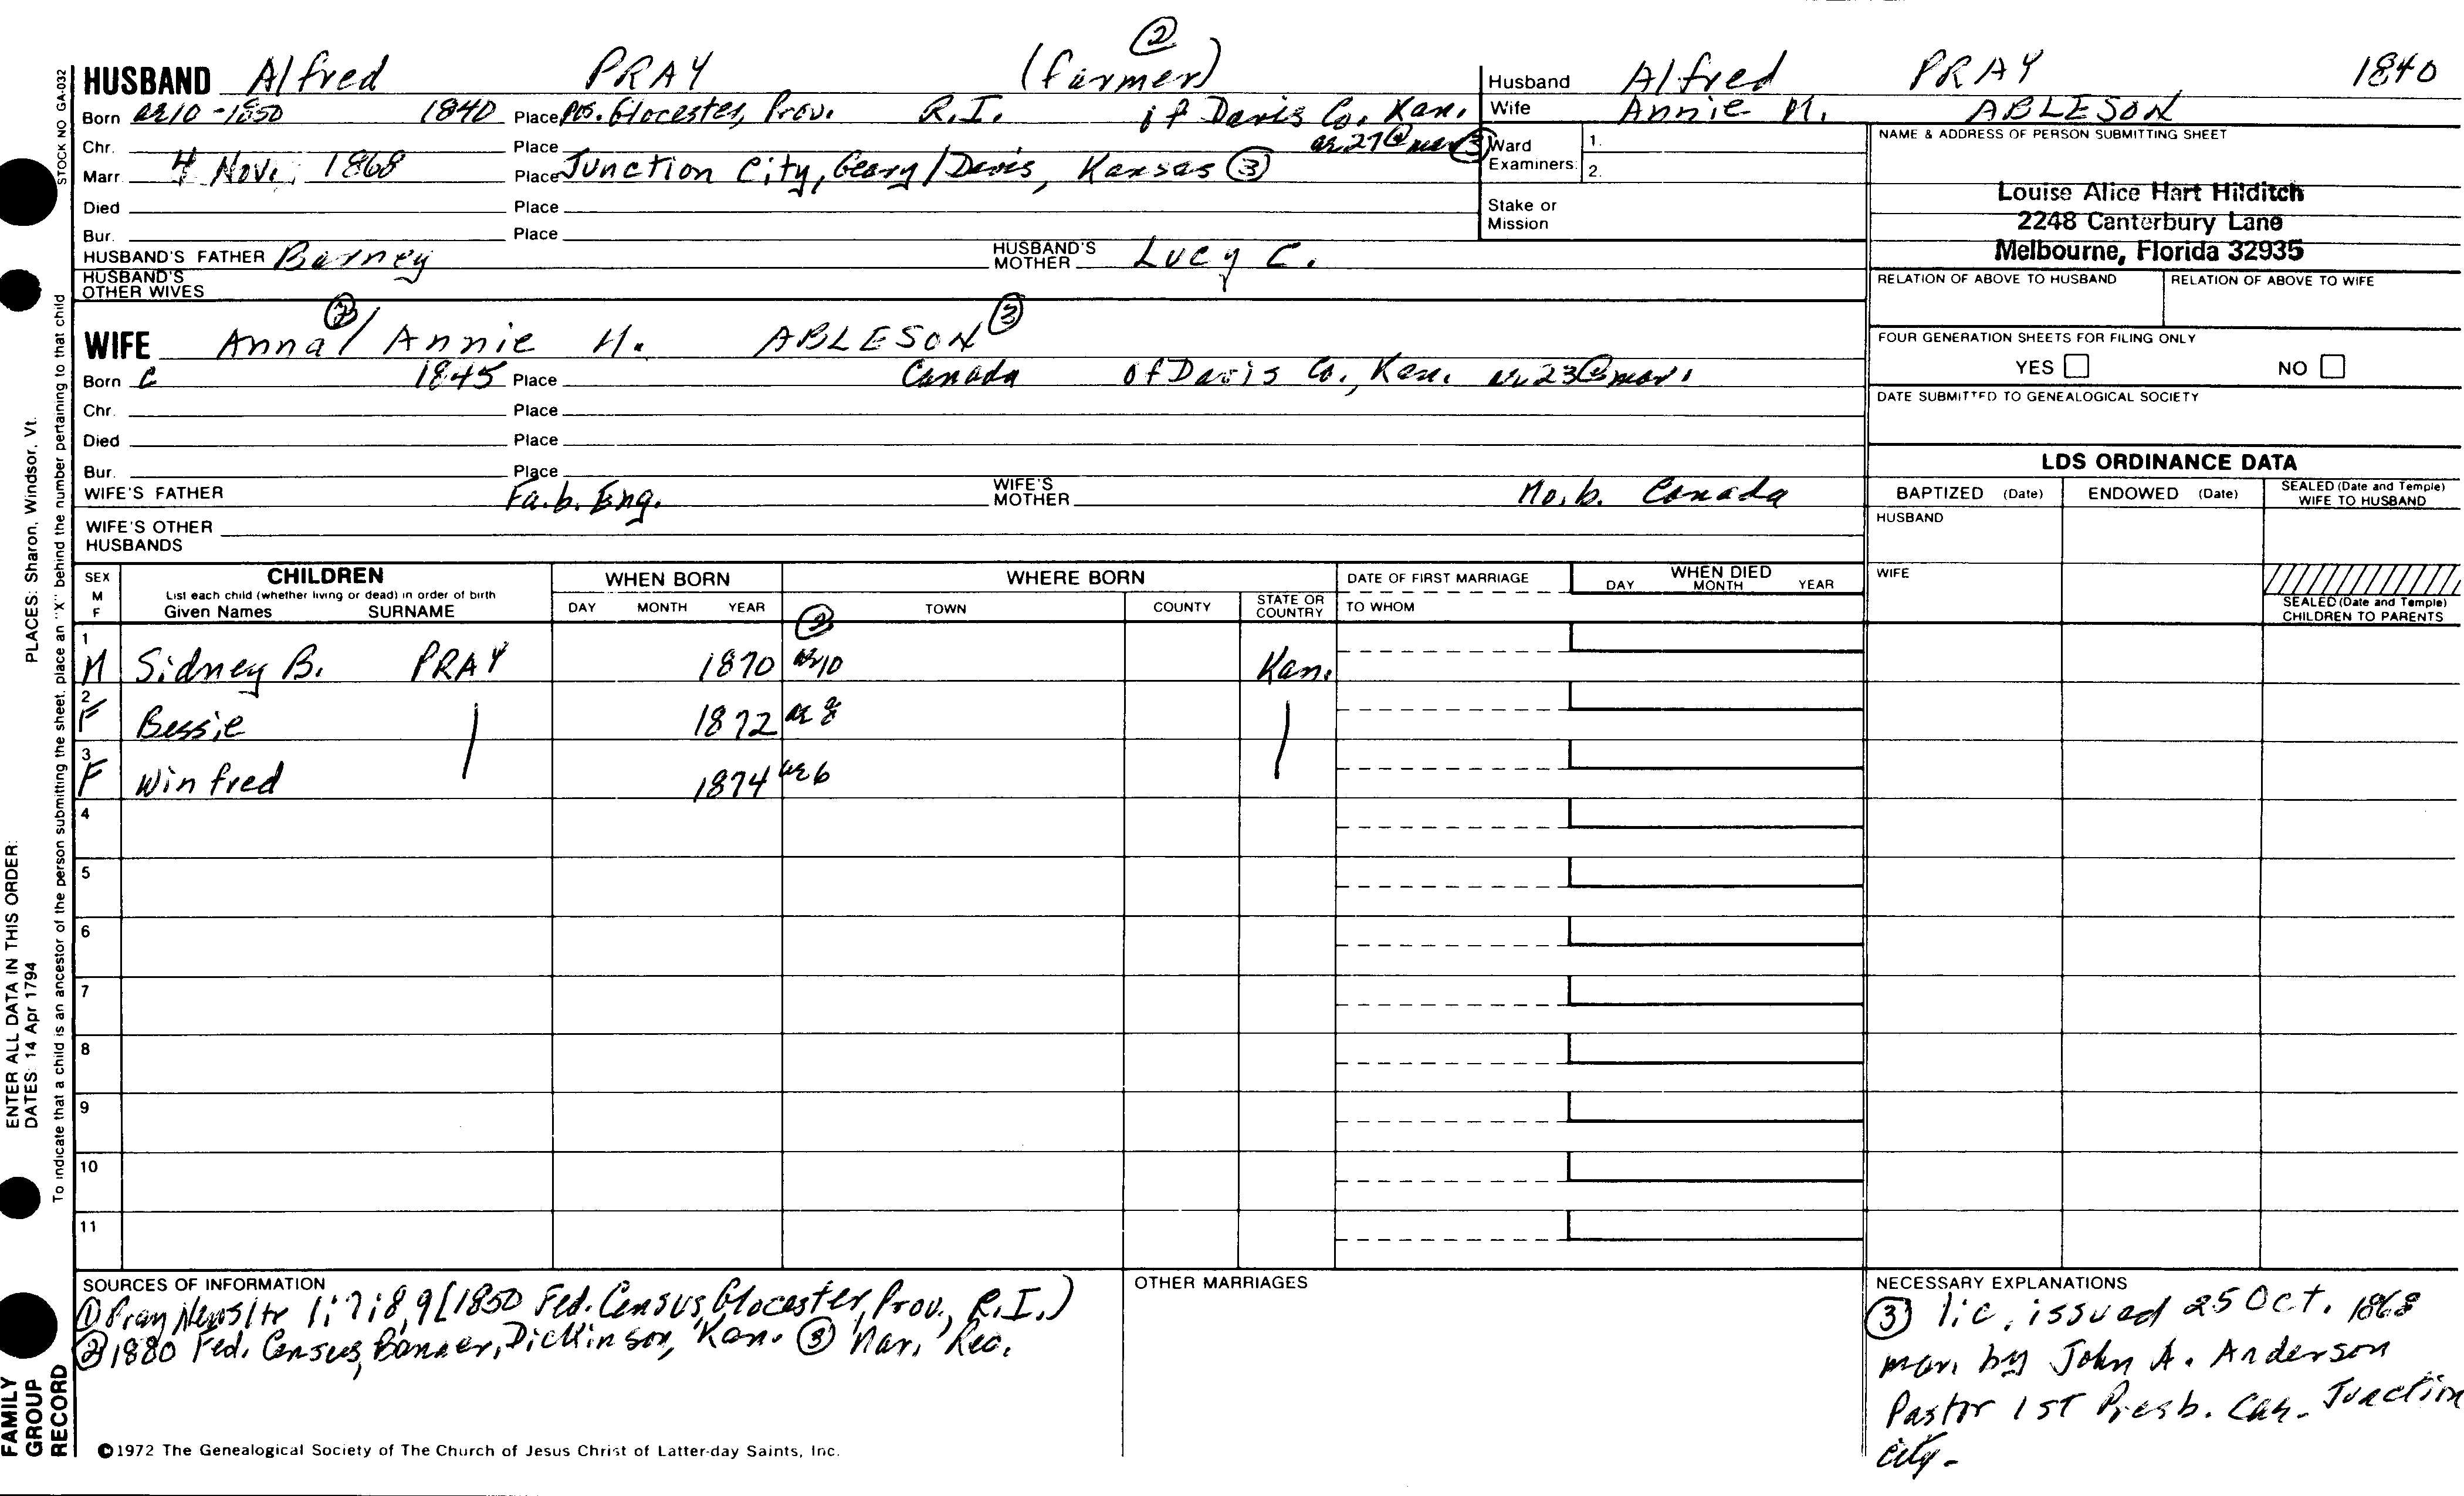 ②
HUSBAND Alfred PRAY (farmer)
Born ae 10 - 1850 1840 Place pos. Glocester, Prov. R.I. of Davis Co. Kan.
Chr. Place ae 27 @ mar ③
Marr. 4 Nov. 1868 Place Junction City, Geary/Davis, Kansas ③
Died Place
Bur. Place
HUSBAND'S FATHER Barney HUSBAND'S MOTHER Lucy C.
HUSBAND'S OTHER WIVES
WIFE Anna ②/ Annie M. ABLESON ③
Born C 1845 Place Canada of Davis Co., Kan. ae 23 @ mar.
Chr. Place
Died Place
Bur. Place
WIFE'S FATHER Fa. b. Eng. WIFE'S MOTHER Mo. b. Canada
WIFE'S OTHER HUSBANDS
Husband Alfred PRAY 1840
Wife Annie M. ABLESON
Ward Examiners: 1.
2.
Stake or Mission
NAME & ADDRESS OF PERSON SUBMITTING SHEET
Louise Alice Hart Hilditch
2248 Canterbury Lane
Melbourne, Florida 32935
RELATION OF ABOVE TO HUSBAND RELATION OF ABOVE TO WIFE
FOUR GENERATION SHEETS FOR FILING ONLY
YES NO
DATE SUBMITTED TO GENEALOGICAL SOCIETY
LDS ORDINANCE DATA
BAPTIZED (Date) ENDOWED (Date) SEALED (Date and Temple) WIFE TO HUSBAND
HUSBAND
WIFE
SEALED (Date and Temple) CHILDREN TO PARENTS
SEX M F CHILDREN WHEN BORN WHERE BORN DATE OF FIRST MARRIAGE WHEN DIED
List each child (whether living or dead) in order of birth
Given Names SURNAME DAY MONTH YEAR TOWN COUNTY STATE OR COUNTRY TO WHOM DAY MONTH YEAR
②
1 M Sidney B. PRAY 1870 ae 10 Kan.
2 F Bessie 1872 ae 8
3 F Winfred 1874 ae 6
4
5
6
7
8
9
10
11
SOURCES OF INFORMATION
① Pray Newsltr 1:7:8,9 [1850 Fed. Census, Glocester, Prov., R.I.)
② 1880 Fed. Census, Banner, Dickinson, Kan. ③ Mar. Rec.
OTHER MARRIAGES
NECESSARY EXPLANATIONS
③ lic. issued 25 Oct. 1868
mar. by John A. Anderson
Pastor 1ST Presb. Junction
City -
©1972 The Genealogical Society of The Church of Jesus Christ of Latter-day Saints, Inc.
STOCK NO GA-032
To indicate that a child is an ancestor of the person submitting the sheet, place an "X" behind the number pertaining to that child
PLACES: Sharon, Windsor, Vt.
ENTER ALL DATA IN THIS ORDER:
DATES: 14 Apr 1794
FAMILY
GROUP
RECORD